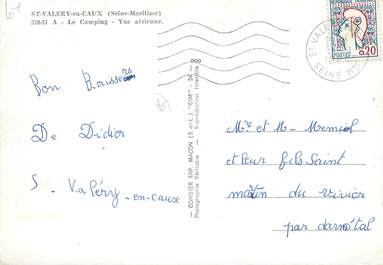 ST-VALERY-en-CAUX (Seine-Maritime)
310-51 A - Le Camping - Vue aérienne.
Bon Baisers
De Didier
S. Valéry-en-caux
COMBIER IMP. MACON (S.-et-L.) "CIM"
Photographie Véritable - Reproduction interdite
ST VALERY
SEINE Mme
POSTES
0,20
Mr et M
et leur fils Saint
martin du vivier
par darnétal